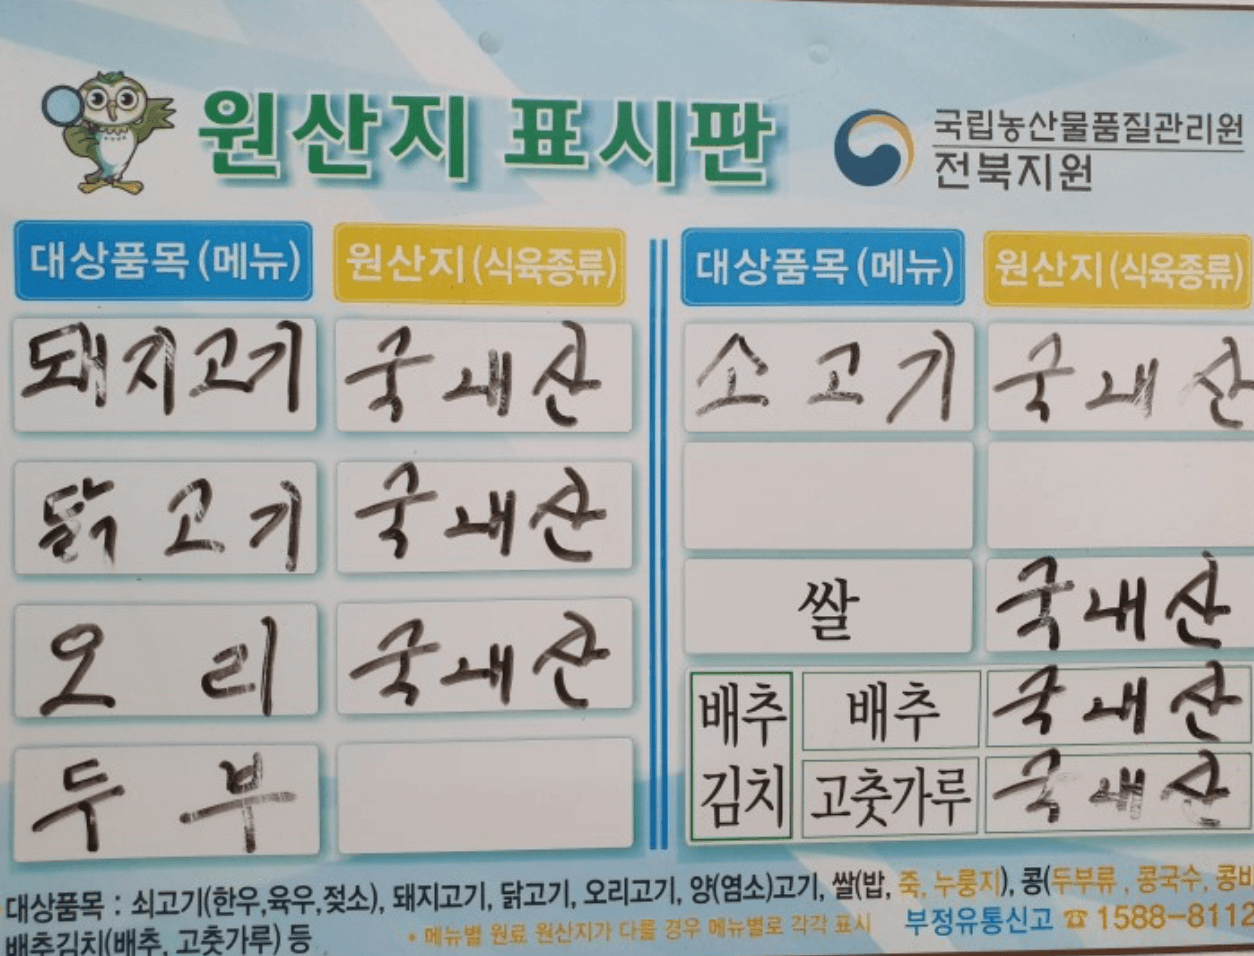 원산지 표시판
국립농산물품질관리원
전북지원
대상품목 (메뉴) 원산지 (식육종류) 대상품목 (메뉴) 원산지 (식육종류)
돼지고기 국내산 소고기 국내산
닭고기 국내산
오리 국내산 쌀 국내산
두부
배추김치 배추 국내산
고춧가루 국내산
대상품목 : 쇠고기(한우,육우,젖소), 돼지고기, 닭고기, 오리고기, 양(염소)고기, 쌀(밥, 죽, 누룽지), 콩(두부류, 콩국수, 콩비
배추김치(배추, 고춧가루) 등
* 메뉴별 원료 원산지가 다를 경우 메뉴별로 각각 표시
부정유통신고 ☎ 1588-8112